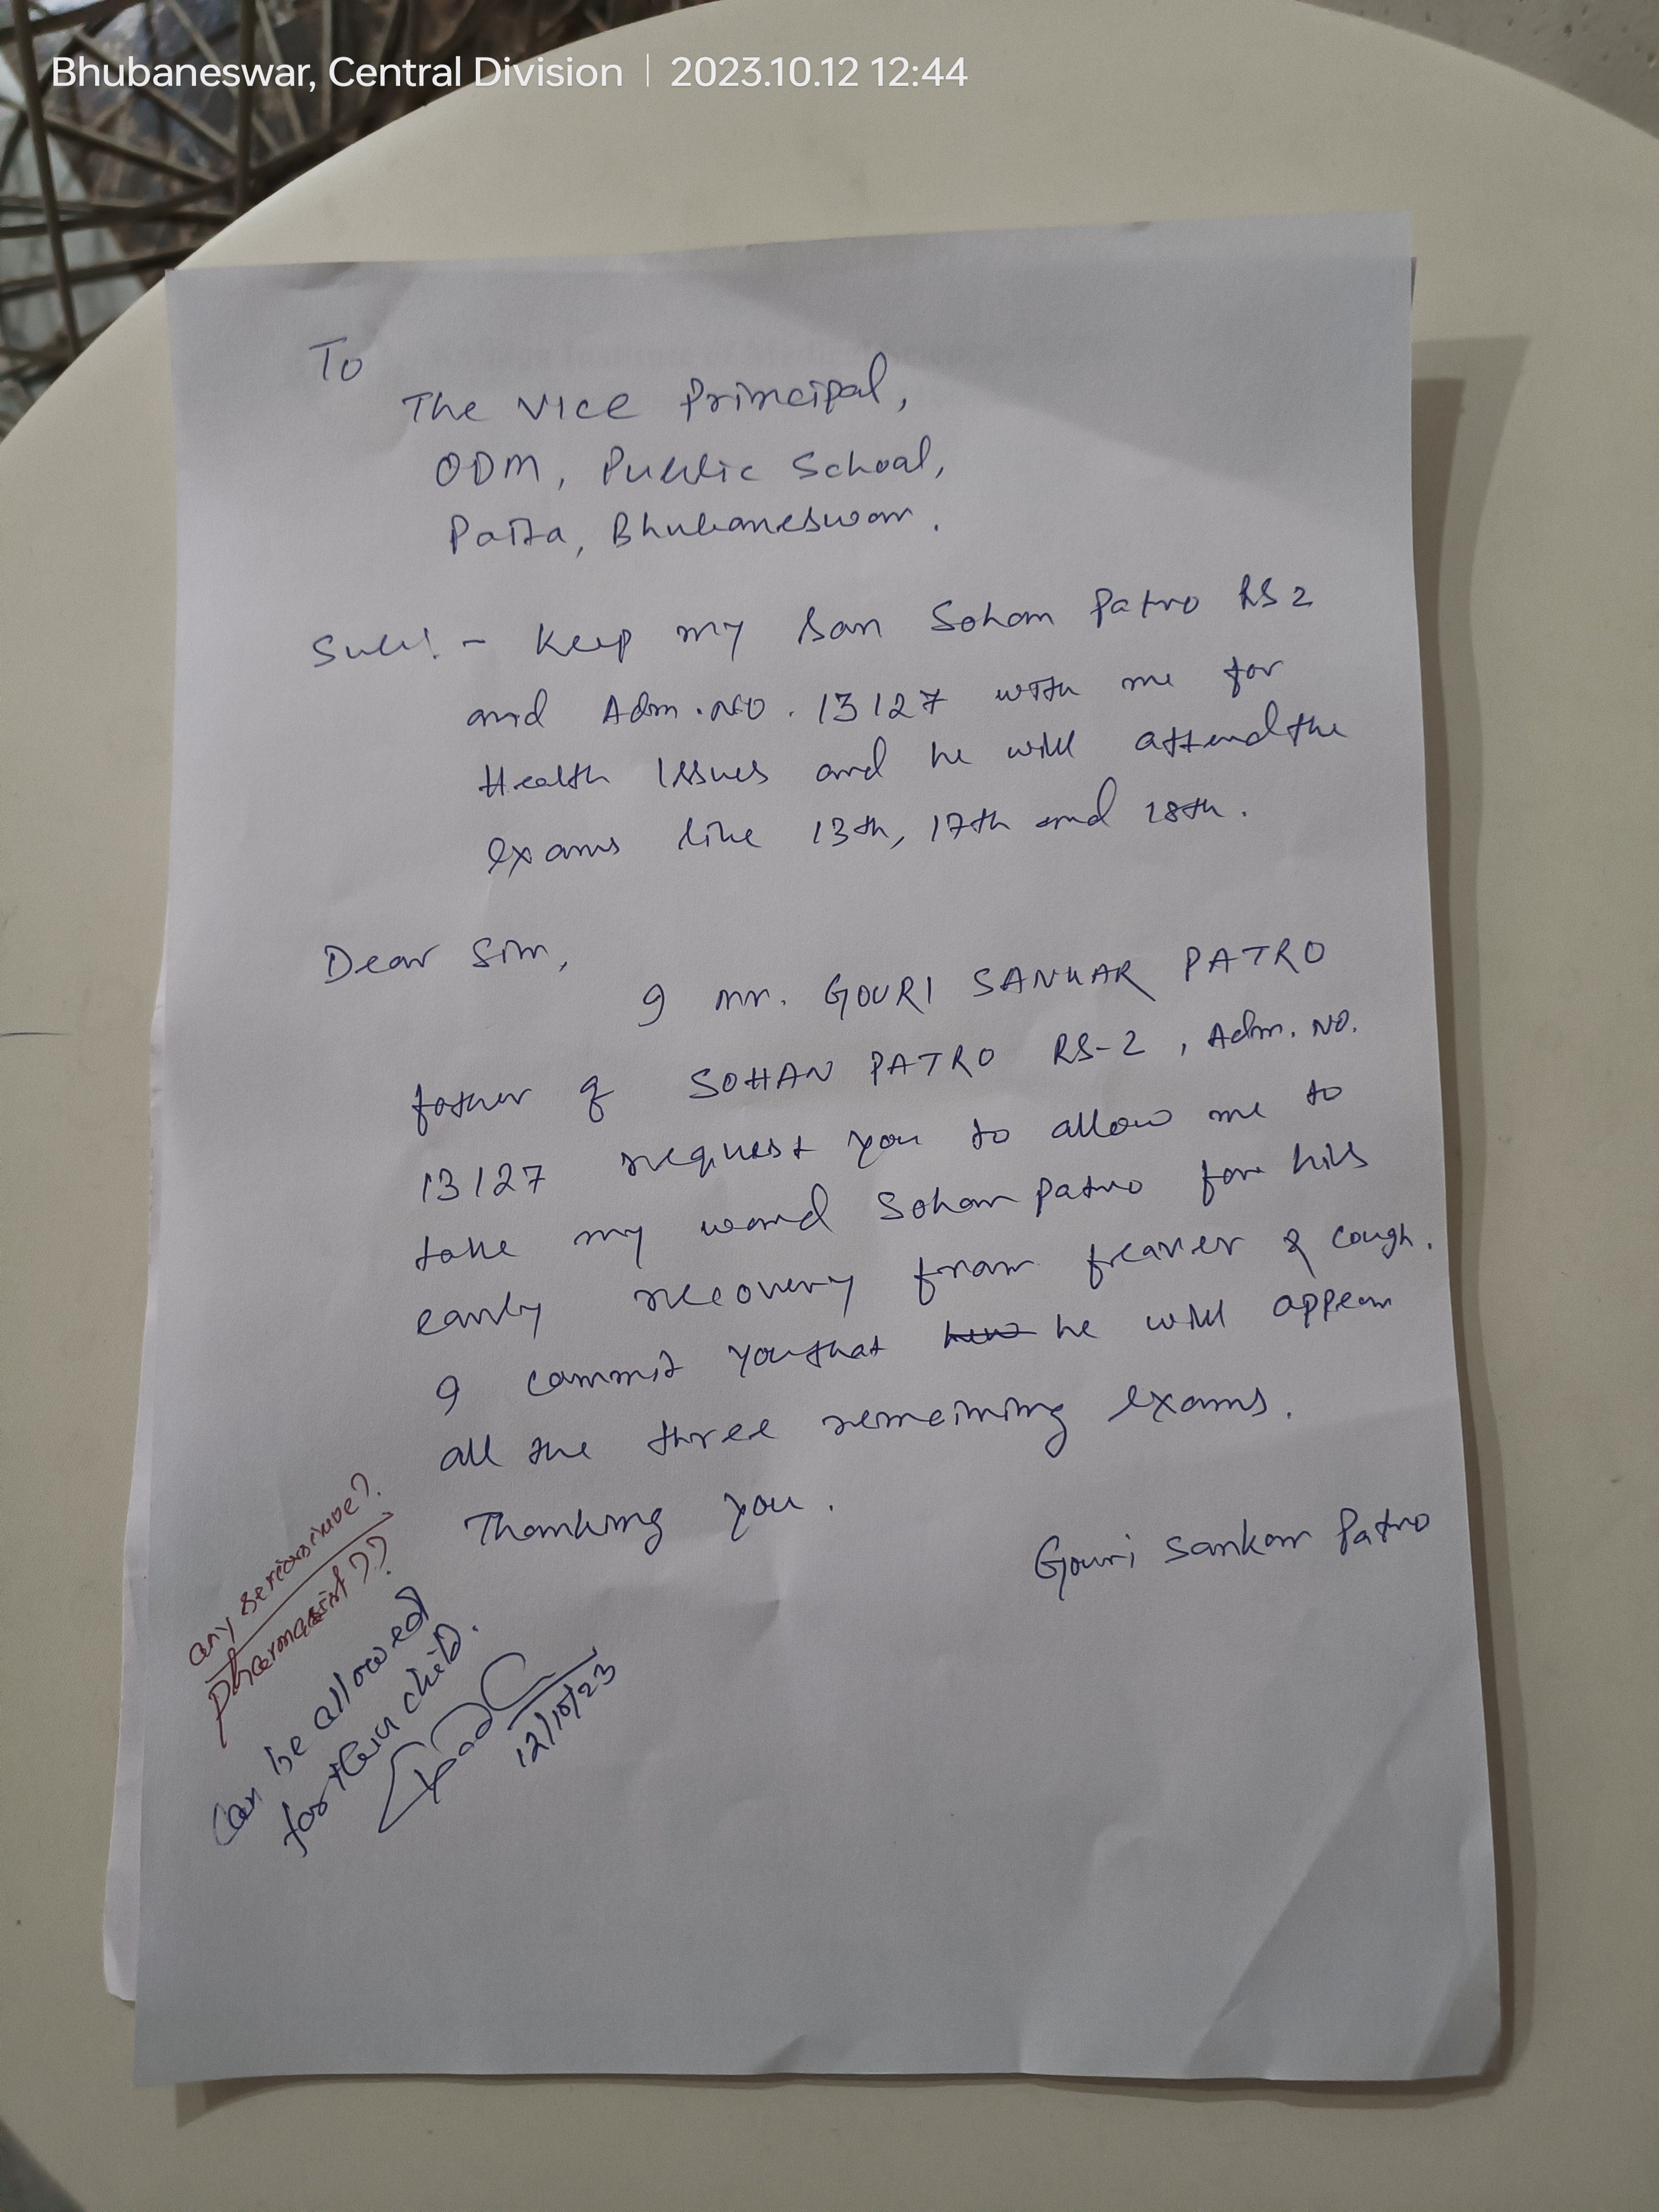 Bhubaneswar, Central Division | 2023.10.12 12:44
To
The Vice Principal,
ODM, Public School,
Patia, Bhubaneswar.
Sub:- Keep my son Sohan Patro RS 2
and Adm.No. 13127 with me for
Health Issues and he will attend the
exams like 13th, 17th and 18th.
Dear Sir,
I Mr. GOURI SANKAR PATRO
father of SOHAN PATRO RS-2, Adm. No.
13127 request you to allow me to
take my ward Sohan Patro for his
early recovery from feaver & cough.
I commit you that he will appear
all the three remeining exams.
Thanking you.
Gouri Sankar Patro
any serious issue?
pharmasist??
Can be allowed
for their child.
12/10/23